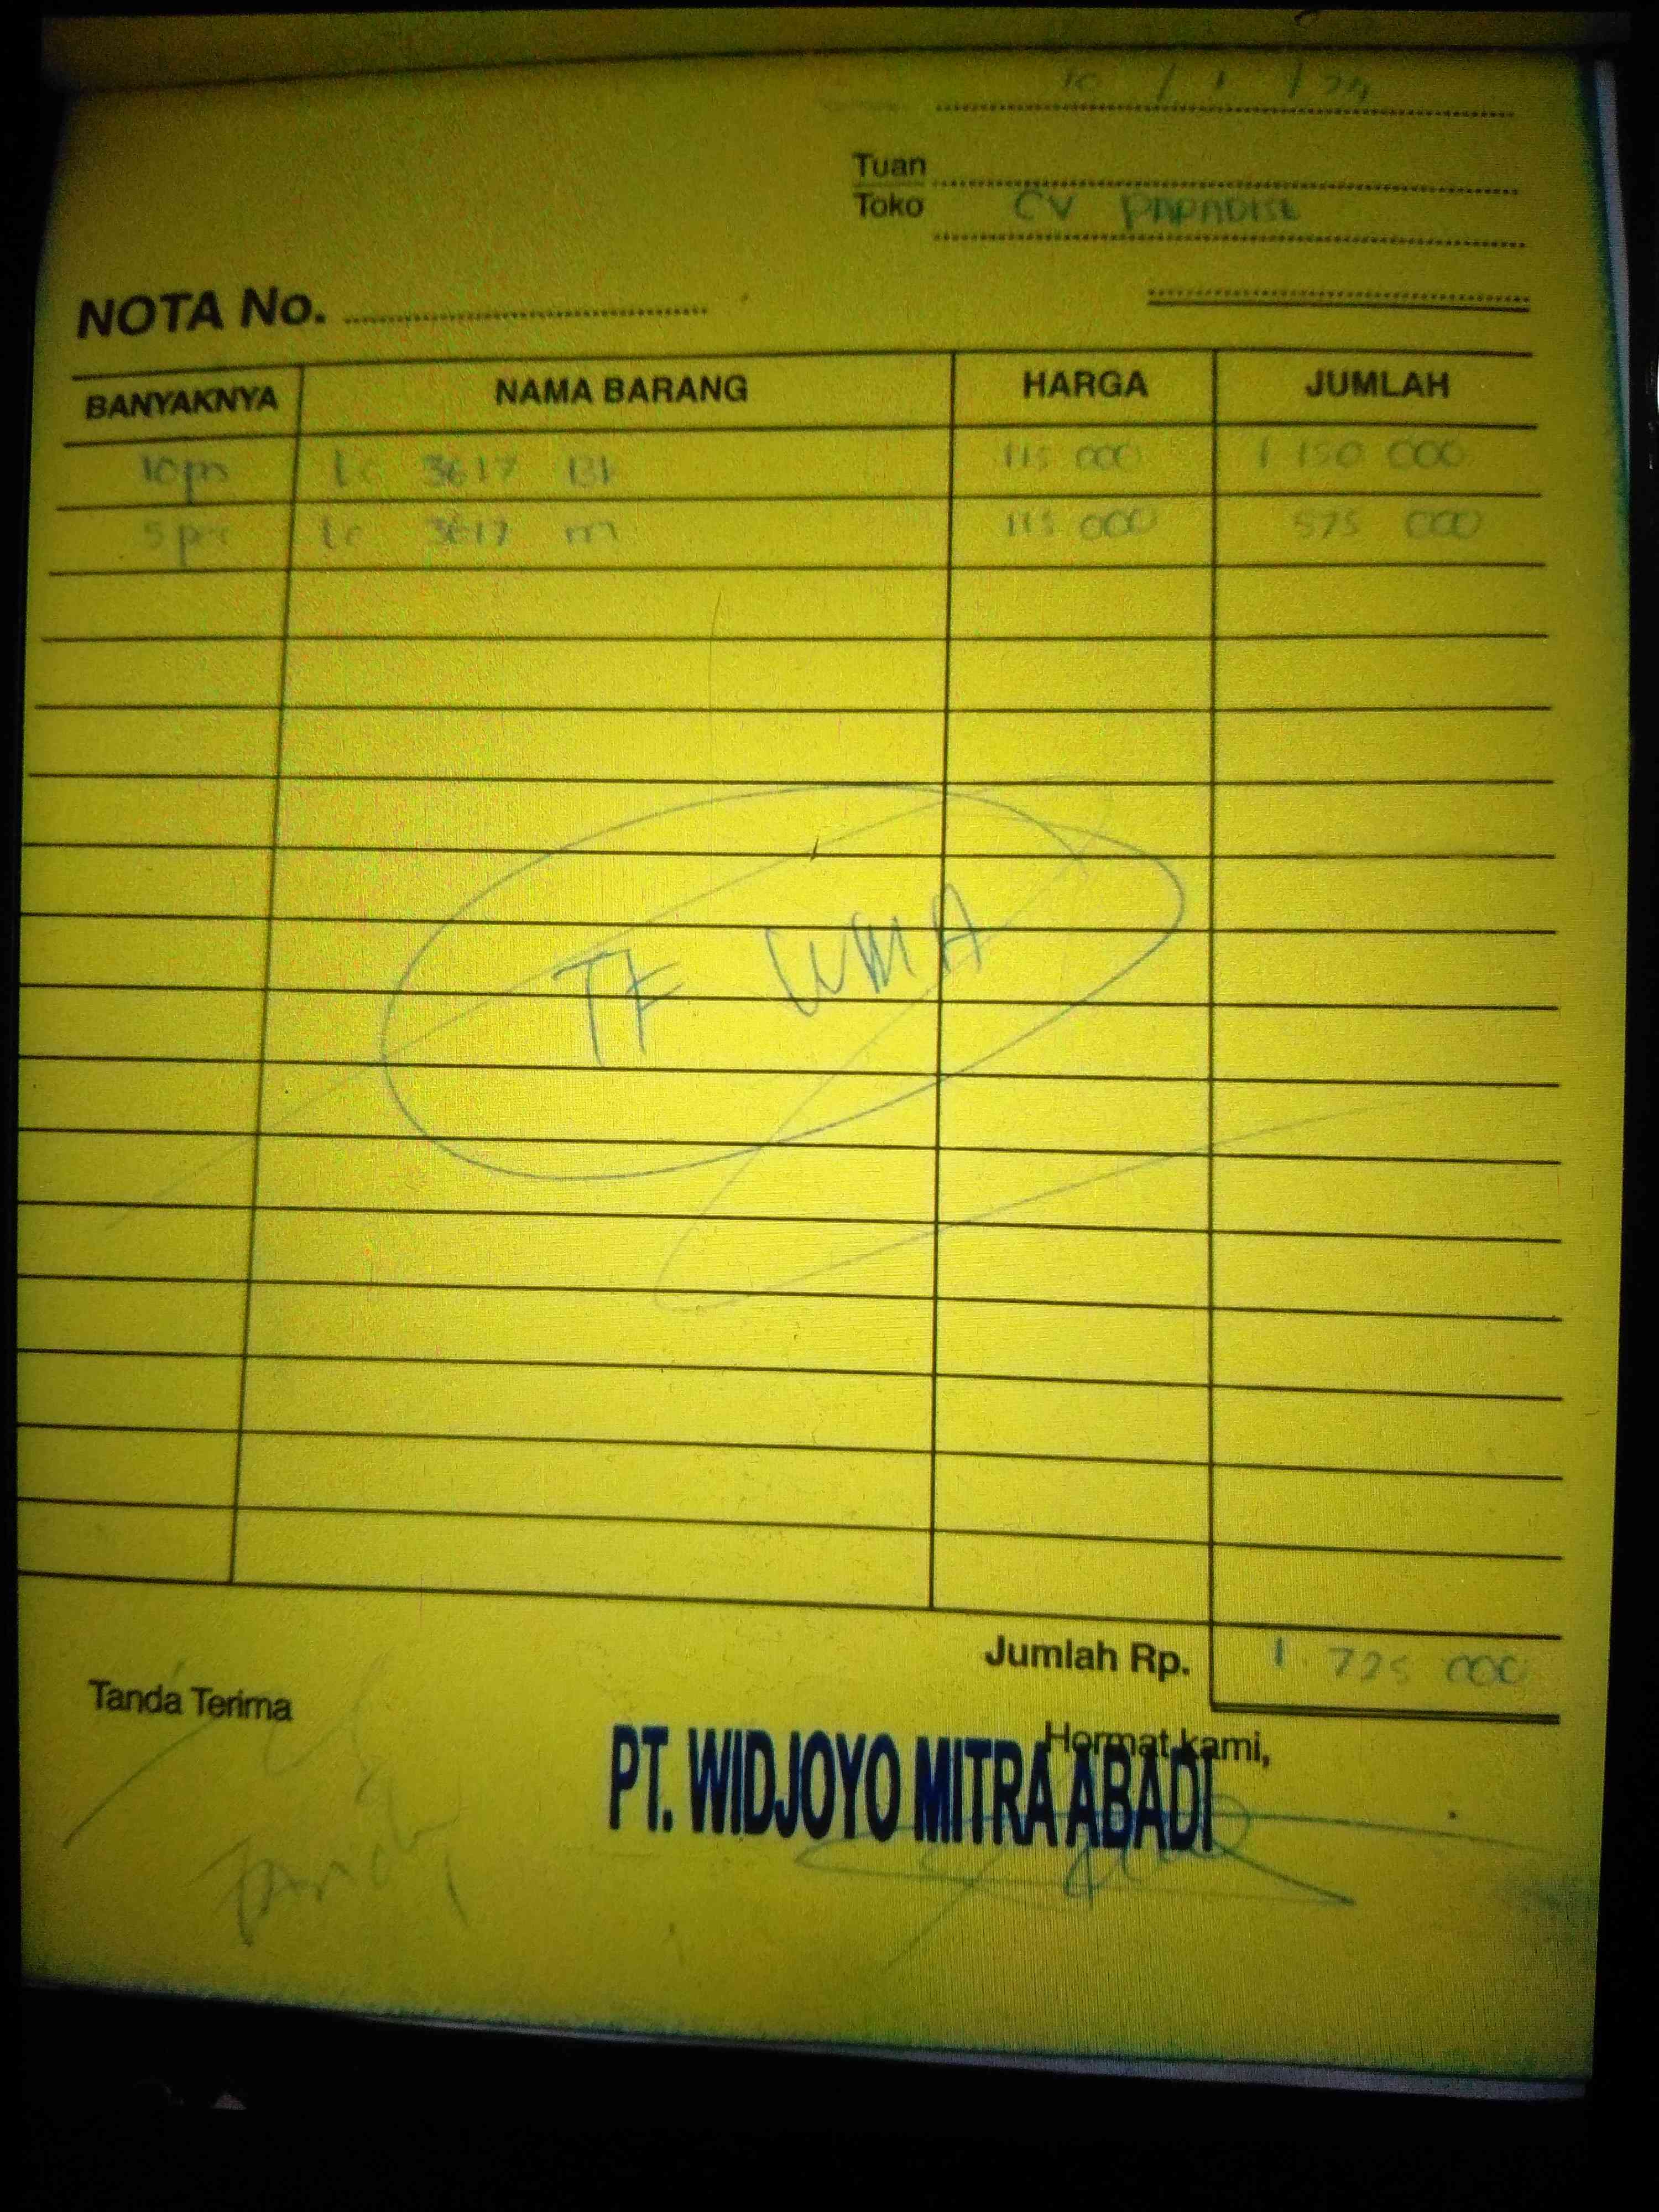 10 / 1 / 24
Tuan
Toko CV PARADISE
NOTA No.
BANYAKNYA NAMA BARANG HARGA JUMLAH
10 ps lc 3617 BL 115 000 1 150 000
5 ps lc 3617 m 115 000 575 000
TF WMA
Jumlah Rp. 1.725 000
Tanda Terima
Hormat kami,
PT. WIDJOYO MITRA ABADI